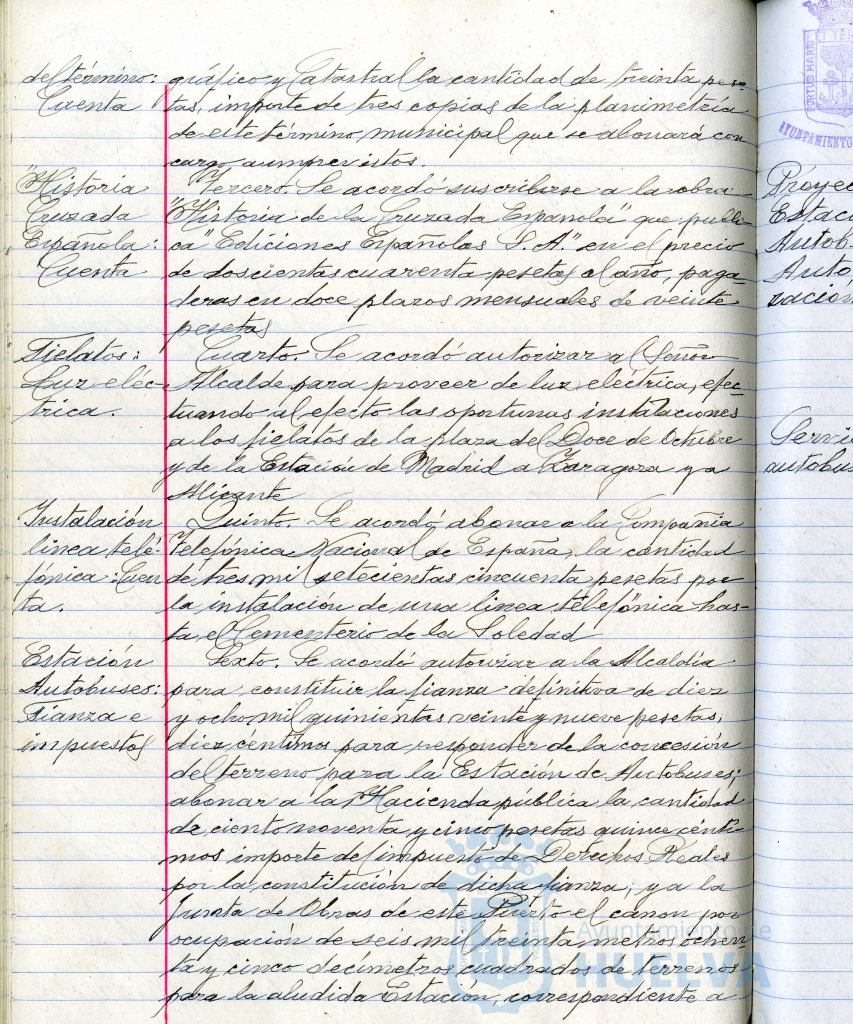 del término:
Cuenta
gráfico y Catastral la cantidad de treinta pese-
tas, importe de tres copias de la planimetría
de este término municipal que se abonará con
cargo a imprevistos.
"Historia
Cruzada
Española:
Cuenta
Tercero. Se acordó suscribirse a la obra
"Historia de la Cruzada Española" que publi-
ca "Ediciones Españolas S.A." en el precio
de doscientas cuarenta pesetas al año, paga-
deras en doce plazos mensuales de veinte
pesetas
Fielatos:
Luz eléc-
trica.
Cuarto. Se acordó autorizar al Señor
Alcalde para proveer de luz eléctrica, efec-
tuando al efecto las oportunas instalaciones
a los fielatos de la plaza del Doce de Octubre
y de la Estación de Madrid a Zaragoza y a
Alicante
Instalación
linea tele-
fónica: Cuen
ta.
Quinto. Se acordó abonar a la Compañia
Telefónica Nacional de España, la cantidad
de tres mil setecientas cincuenta pesetas por
la instalación de una linea telefónica has-
ta el Cementerio de la Soledad
Estación
Autobuses:
Fianza e
impuestos
Sexto. Se acordó autorizar a la Alcaldía
para constituir la fianza definitiva de diez
y ocho mil quinientas veinte y nueve pesetas,
diez céntimos para responder de la concesión
del terreno para la Estación de Autobuses;
abonar a la Hacienda pública la cantidad
de ciento noventa y cinco pesetas quince cénti-
mos importe del impuesto de Derechos Reales
por la constitución de dicha fianza; y a la
Junta de Obras de este Puerto el canon por
ocupación de seis mil treinta metros ochen-
ta y cinco decímetros cuadrados de terrenos
para la aludida Estación, correspondiente a
Proyec
Estaci
Autob
Auto
zación
Servic
autobus
PORTUS MARIS
AYUNTAMIENTO
Ayuntamiento de
HUELVA